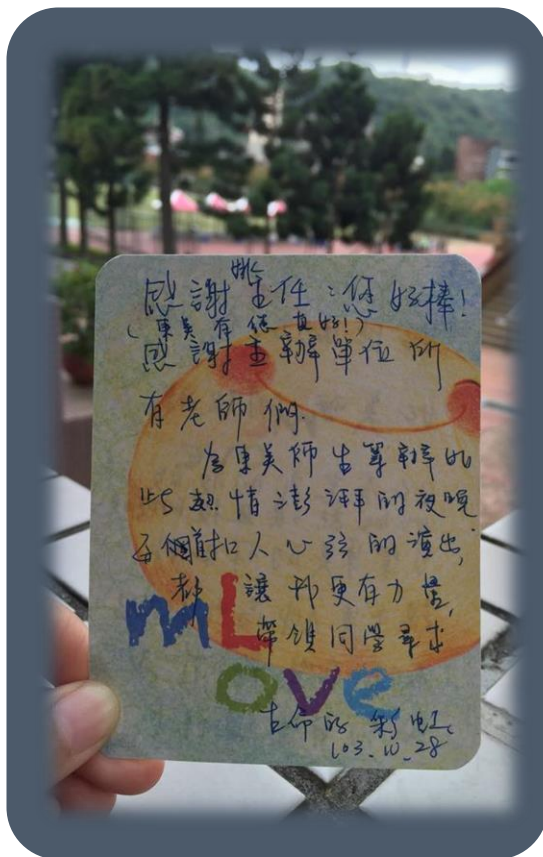 感謝姚主任：您好棒！
（東美有您真好！）
感謝主辦單位所
有老師們
為東美師生籌辦如
此熱情澎湃的夜晚
每個首扣人心弦的演出，
都讓我更有力量，
帶領同學尋求
生命的彩虹
103.10.28
mL
ove